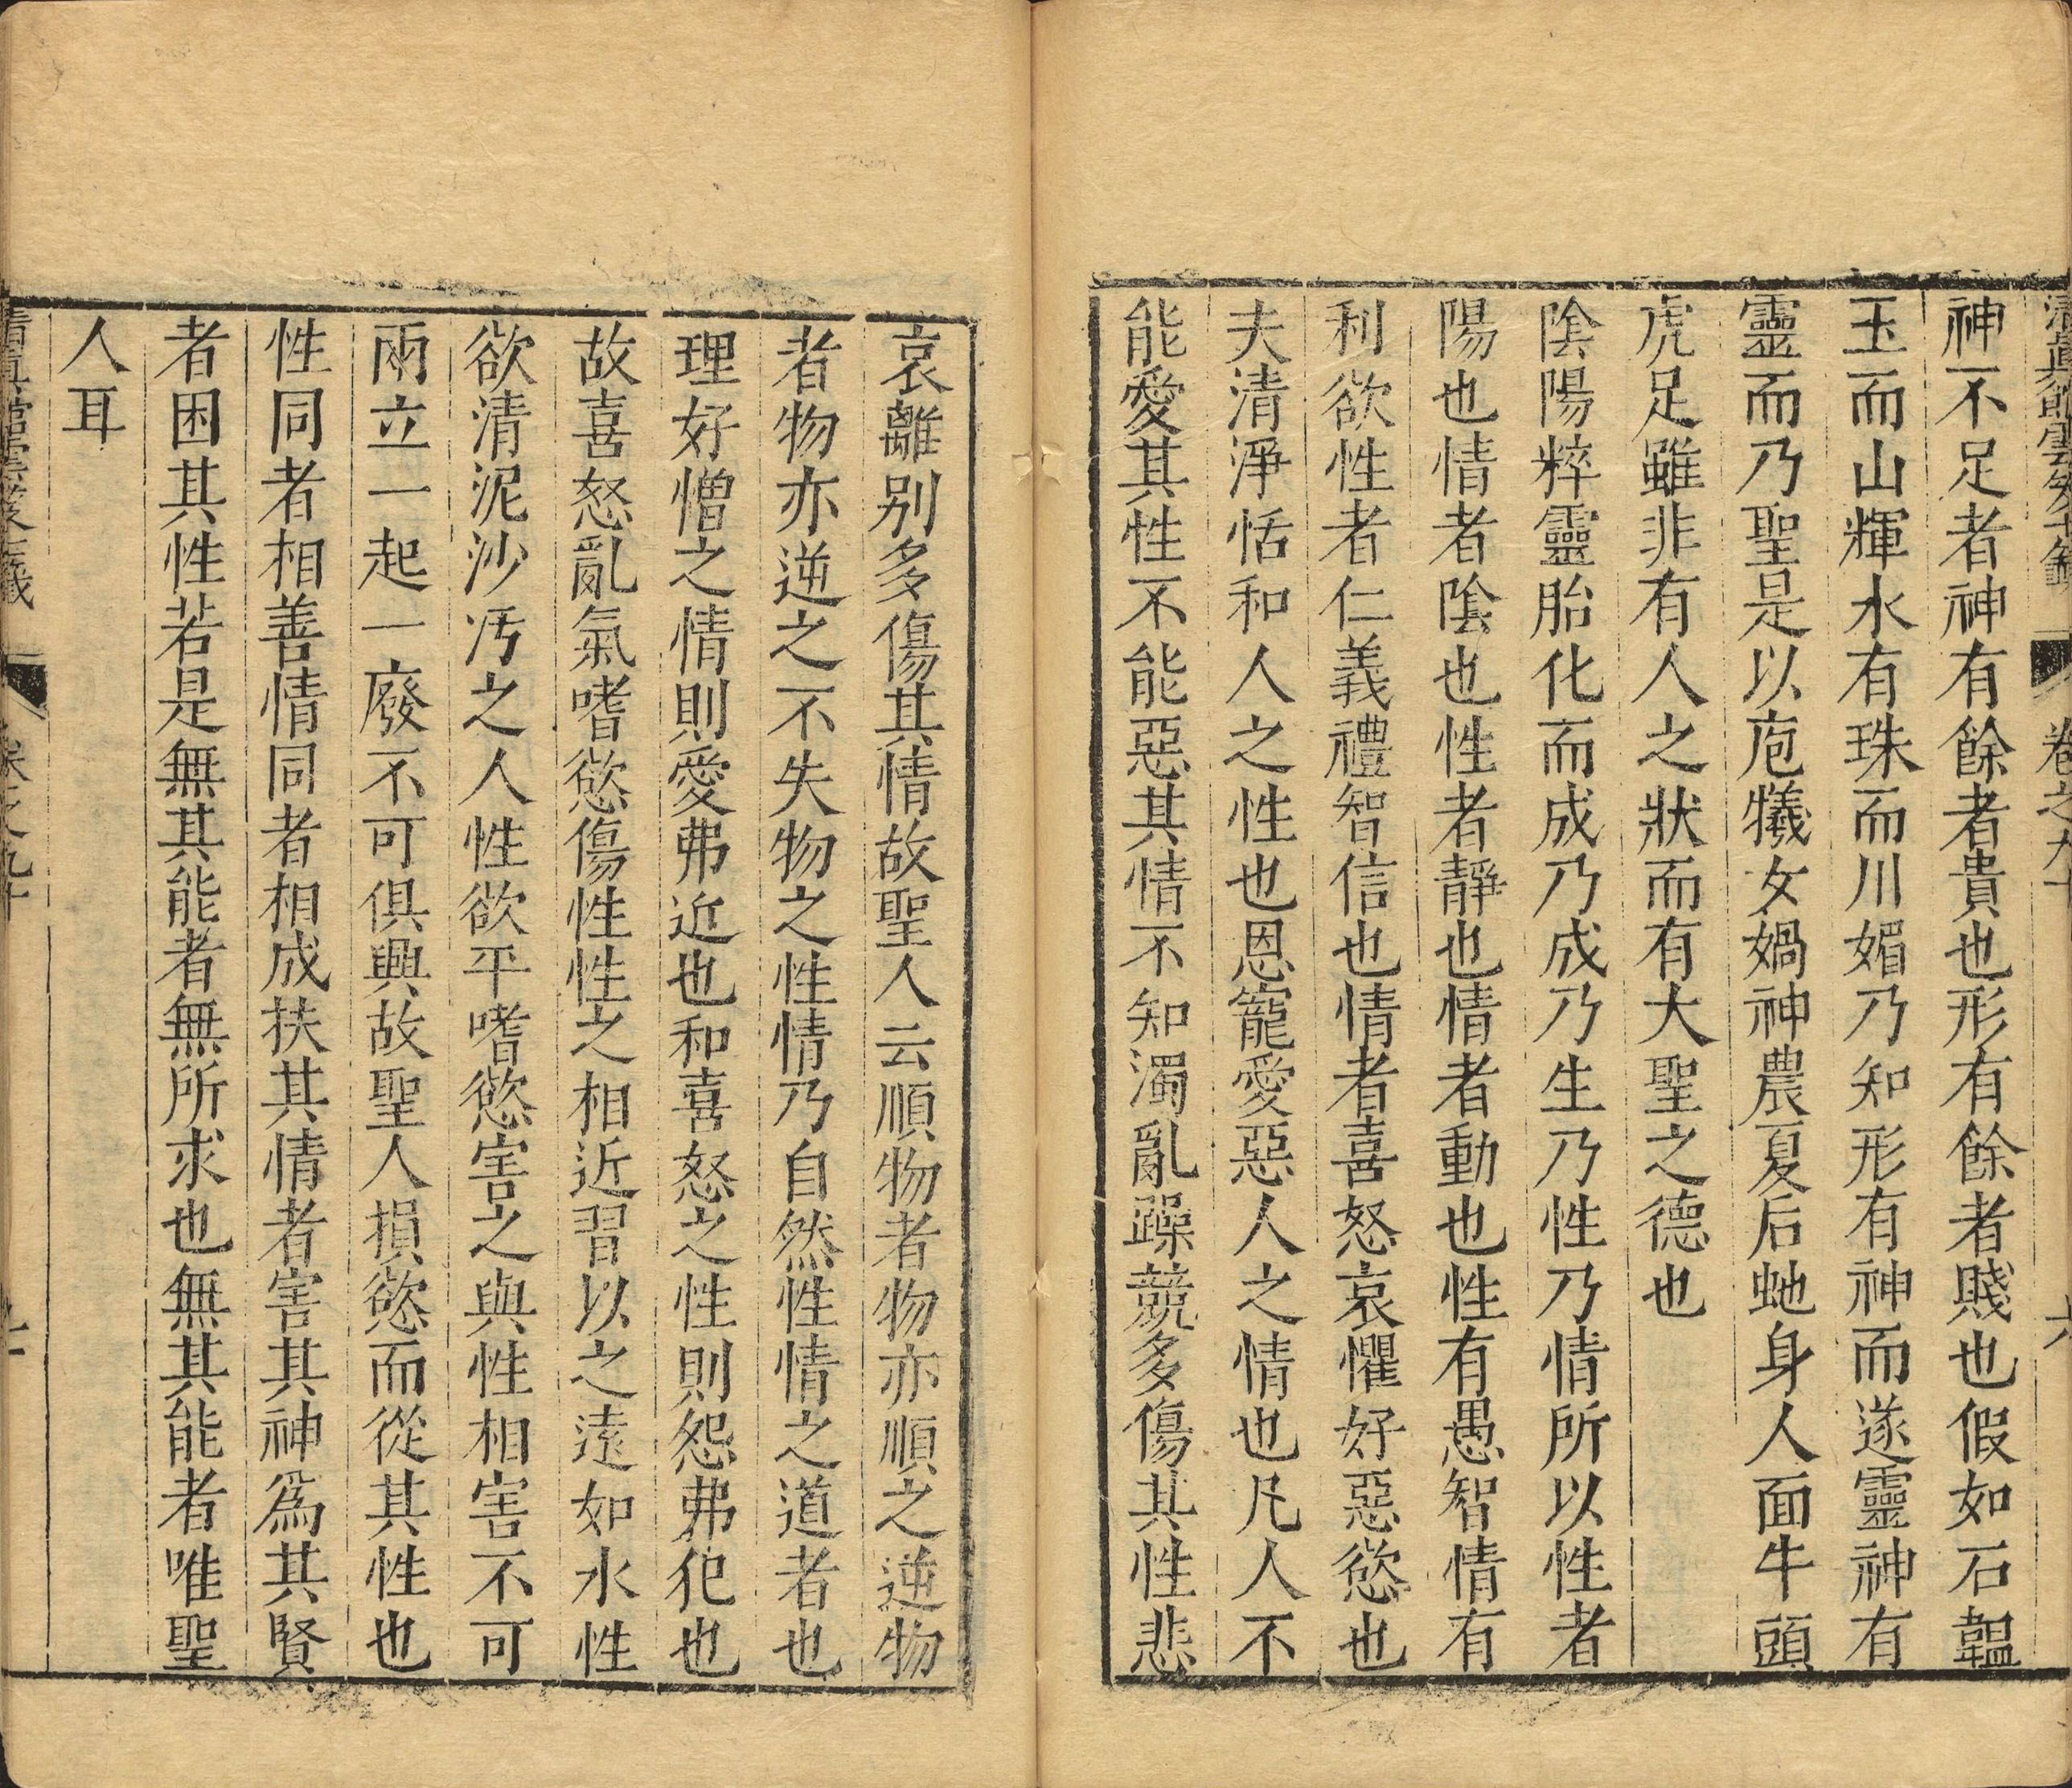 卷之九十
神不足者神有餘者貴也形有餘者賤也假如石韞
玉而山輝水有珠而川媚乃知形有神而遂靈神有
靈而乃聖是以庖犧女媧神農夏后虵身人面牛頭
虎足雖非有人之狀而有大聖之德也
陰陽粹靈胎化而成乃成乃生乃性乃情所以性者
陽也情者陰也性者靜也情者動也性有愚智情有
利欲性者仁義禮智信也情者喜怒哀懼好惡慾也
夫清淨恬和人之性也恩寵愛惡人之情也凡人不
能愛其性不能惡其情不知濁亂躁競多傷其性悲
哀離別多傷其情故聖人云順物者物亦順之逆物
者物亦逆之不失物之性情乃自然性情之道者也
理好憎之情則愛弗近也和喜怒之性則怨弗犯也
故喜怒亂氣嗜慾傷性性之相近習以之遠如水性
欲清泥沙汚之人性欲平嗜慾害之與性相害不可
兩立一起一廢不可俱興故聖人損慾而從其性也
性同者相善情同者相成扶其情者害其神爲其賢
者困其性若是無其能者無所求也無其能者唯聖
人耳